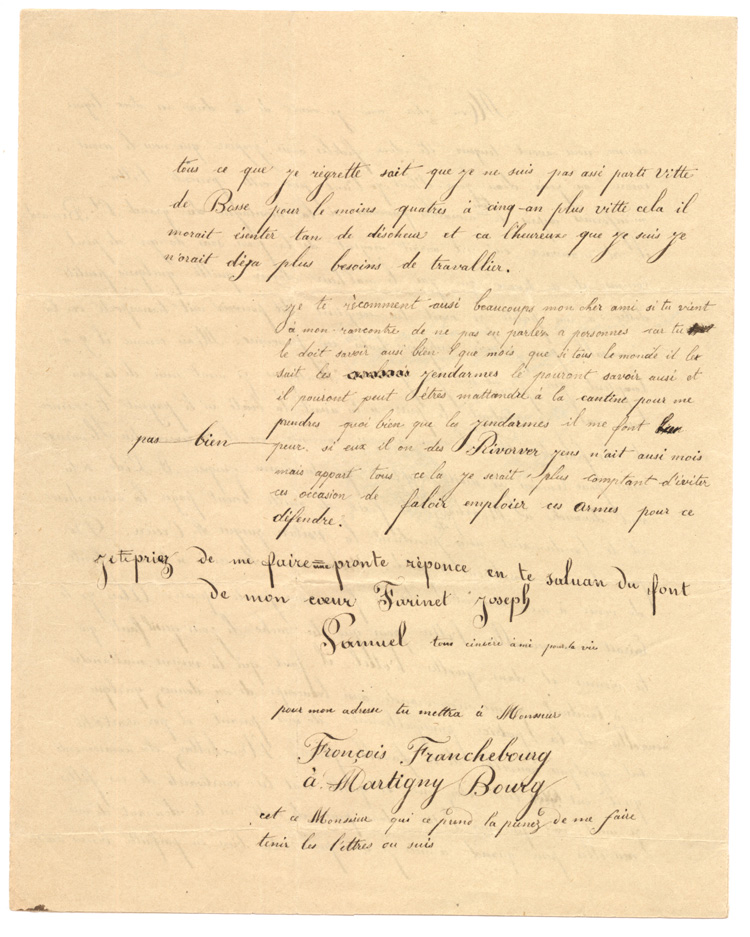 tous ce que je règrette sait que je ne suis pas assi parti vitte
de Bosse pour le moins quatres à cinq-an plus vitte cela il
morait ésenter tan de discheur et ca l'heureux que je suis je
n'orait déja plus besoins de travallier.
je te rècomment ausi beaucoups mon cher ami si tu vient
à mon rancontre de ne pas en parler a personnes car tu
le doit savoir ausi bien que mois que si tous le monde il le
sait les jendarmes le pouront savoir ausi et
il pouront peut êtres mattandre à la cantine pour me
prendres quoi bien que les jendarmes il me font
pas bien peur si eux il on des Rivorver jens n'ait ausi mois
mais appart tous cela je serait plus comptant d'iviter
ces occasion de faloir emploier ces armes pour ce
difendre.
je te priez de me faire une pronte rèponce en te saluan du font
de mon cœur Farinet Joseph
Samuel tous cincère ami pour la vie
pour mon adresse tu mettra à Monsieur
Fronçois Franchebourg
à Martigny Bourg
cet ce Monsieur qui ce prend la penez de me faire
tenir les l'ettres ou suis